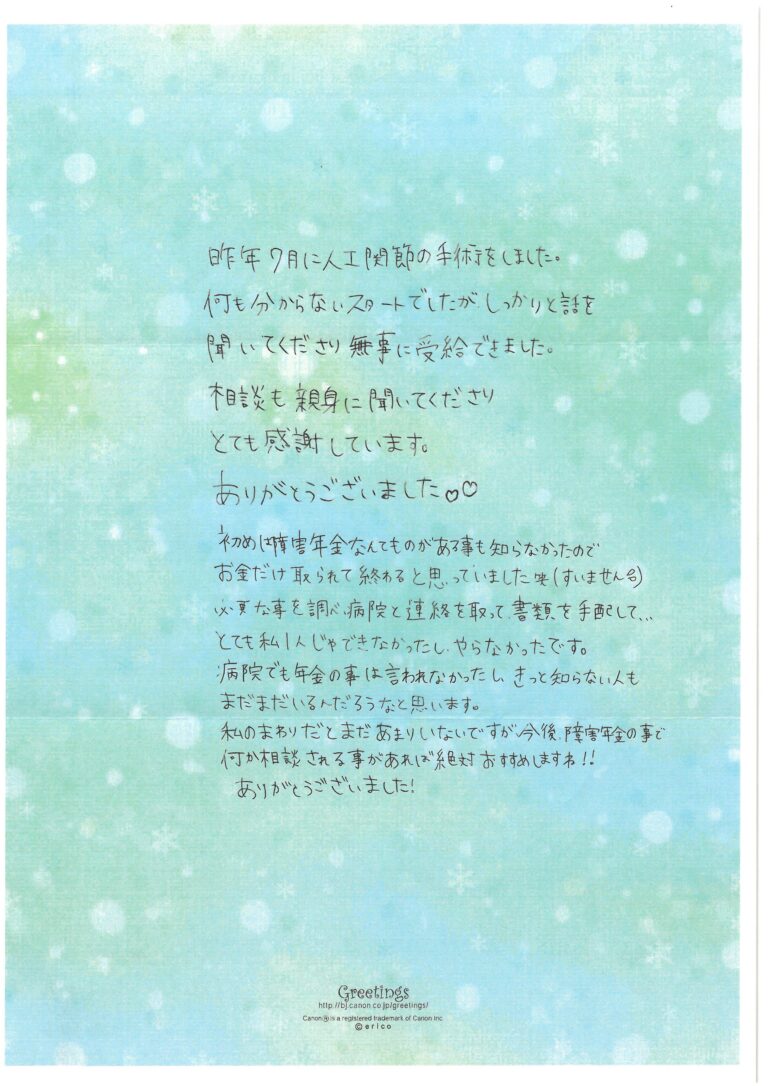 昨年7月に人工関節の手術をしました。
何も分からないスタートでしたがしっかりと話を
聞いてくださり無事に受給できました。
相談も親身に聞いてくださり
とても感謝しています。
ありがとうございました♡♡
初めは障害年金なんてものがある事も知らなかったので
お金だけ取られて終わると思っていました笑(すいません)
必要な事を調べ、病院と連絡を取って、書類を手配して...
とても私1人じゃできなかったし、やらなかったです。
病院でも年金の事は言われなかったし、きっと知らない人も
まだまだいるんだろうなと思います。
私のまわりだとまだあまりいないですが、今後、障害年金の事で
何か相談される事があれば絶対おすすめしますね!!
ありがとうございました!
Greetings
http://bj.canon.co.jp/greetings/
Canon® is a registered trademark of Canon Inc
©erico